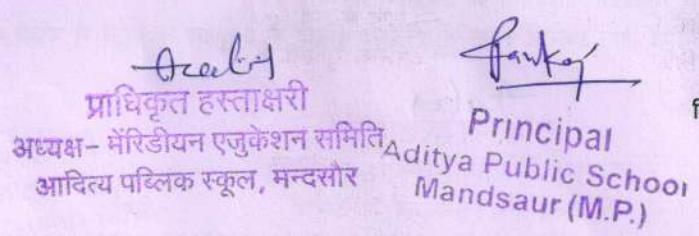 प्राधिकृत हस्ताक्षरी
अध्यक्ष- मेंरिडीयन एजुकेशन समिति
आदित्य पब्लिक स्कूल, मन्दसौर
Pankaj
Principal
Aditya Public School
Mandsaur (M.P.)